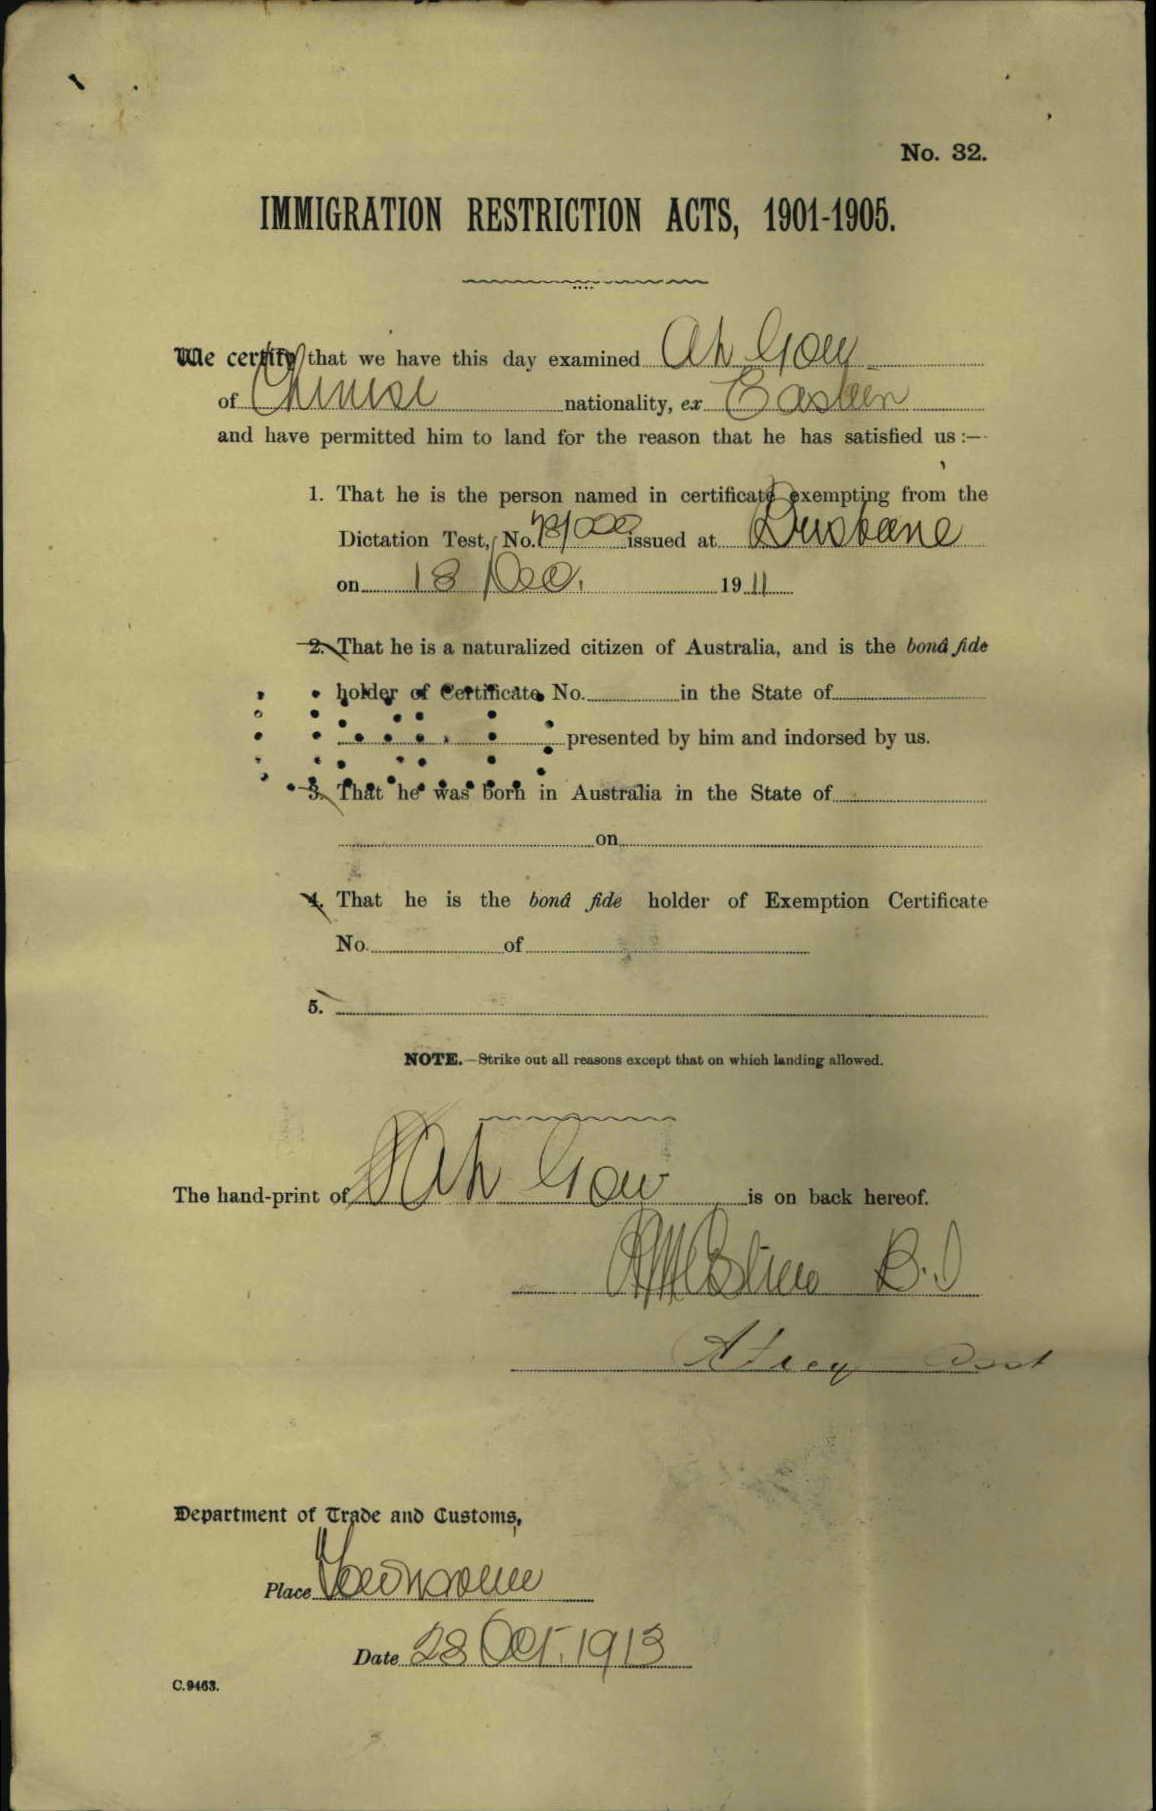 No. 32.
IMMIGRATION RESTRICTION ACTS, 1901-1905.
We certify that we have this day examined Ah Gow
of Chinese nationality, ex Eastern
and have permitted him to land for the reason that he has satisfied us :—
1. That he is the person named in certificate exempting from the
Dictation Test, No. issued at Brisbane
on 18 Dec. 1911
2. That he is a naturalized citizen of Australia, and is the bonâ fide
holder of Certificate No. in the State of
presented by him and indorsed by us.
3. That he was born in Australia in the State of
on
4. That he is the bonâ fide holder of Exemption Certificate
No. of
5.
NOTE.—Strike out all reasons except that on which landing allowed.
The hand-print of Ah Gow is on back hereof.
B.I
Department of Trade and Customs,
Place Townsville
Date 28 Oct. 1913
C.9463.